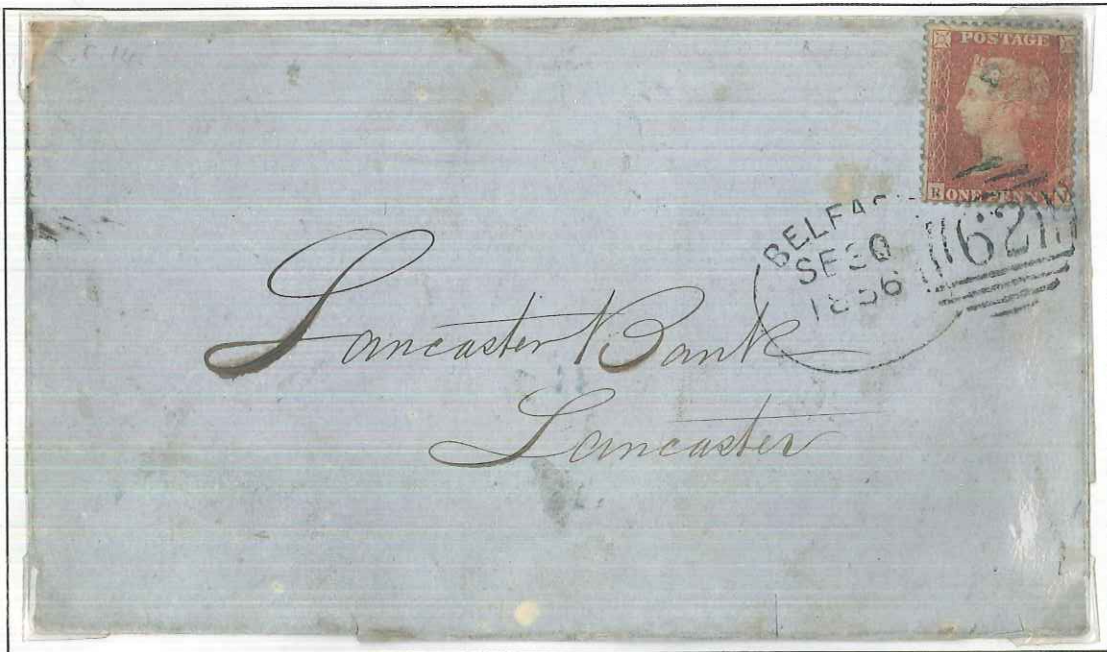 POSTAGE
ONE PENNY
BELFAS
SE 30
1856
62
Lancaster Bank
Lancaster